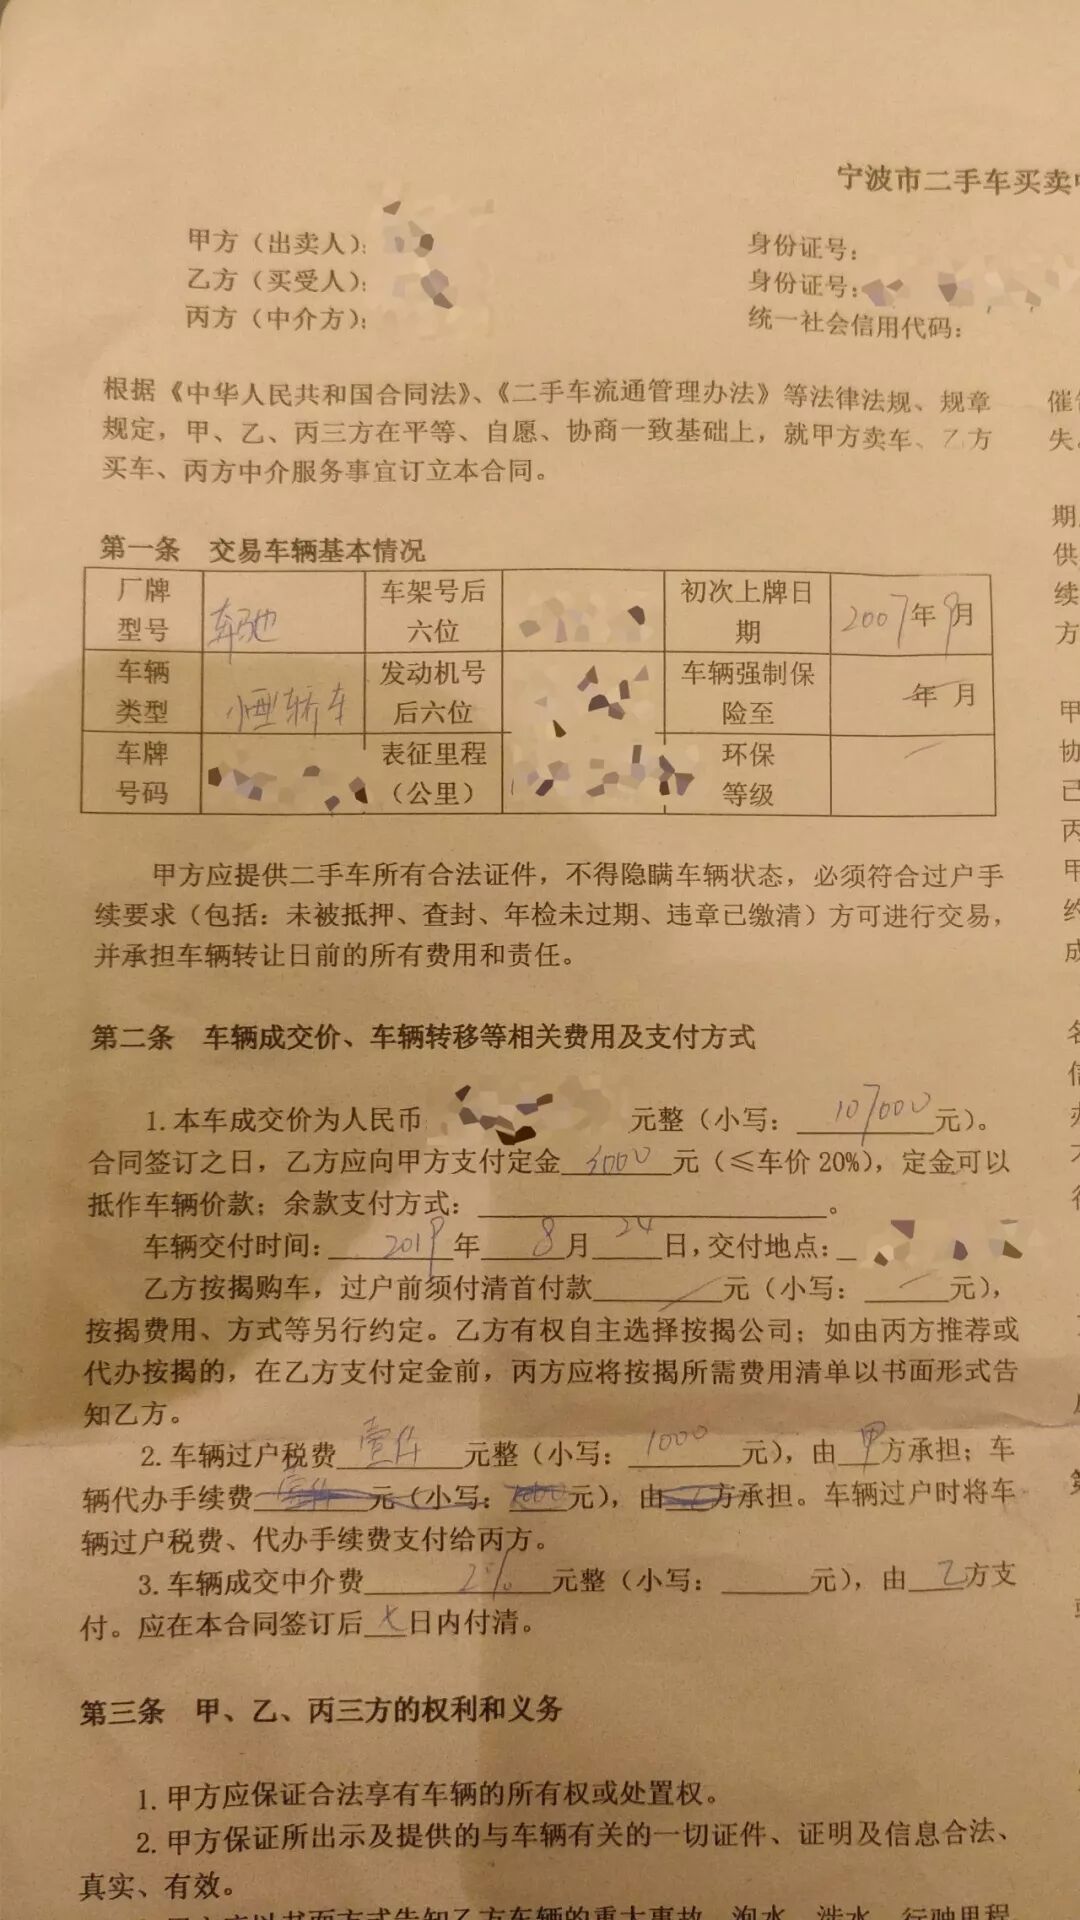 宁波市二手车买卖
甲方（出卖人）：
身份证号：
乙方（买受人）：
身份证号：
丙方（中介方）：
统一社会信用代码：
根据《中华人民共和国合同法》、《二手车流通管理办法》等法律法规、规章
规定，甲、乙、丙三方在平等、自愿、协商一致基础上，就甲方卖车、乙方
买车、丙方中介服务事宜订立本合同。
第一条 交易车辆基本情况
厂牌型号 奔驰 车架号后六位 初次上牌日期 2007年9月
车辆类型 小型轿车 发动机号后六位 车辆强制保险至 年 月
车牌号码 表征里程（公里） 环保等级
甲方应提供二手车所有合法证件，不得隐瞒车辆状态，必须符合过户手
续要求（包括：未被抵押、查封、年检未过期、违章已缴清）方可进行交易，
并承担车辆转让日前的所有费用和责任。
第二条 车辆成交价、车辆转移等相关费用及支付方式
1. 本车成交价为人民币 元整（小写：107000元）。
合同签订之日，乙方应向甲方支付定金 元（≤车价 20%），定金可以
抵作车辆价款；余款支付方式： 。
车辆交付时间：2019年8月24日，交付地点：
乙方按揭购车，过户前须付清首付款 元（小写： 元），
按揭费用、方式等另行约定。乙方有权自主选择按揭公司；如由丙方推荐或
代办按揭的，在乙方支付定金前，丙方应将按揭所需费用清单以书面形式告
知乙方。
2. 车辆过户税费壹仟元整（小写：1000元），由甲方承担；车
辆代办手续费壹仟元（小写：1000元），由乙方承担。车辆过户时将车
辆过户税费、代办手续费支付给丙方。
3. 车辆成交中介费2%元整（小写： 元），由乙方支
付。应在本合同签订后七日内付清。
第三条 甲、乙、丙三方的权利和义务
1. 甲方应保证合法享有车辆的所有权或处置权。
2. 甲方保证所出示及提供的与车辆有关的一切证件、证明及信息合法、
真实、有效。